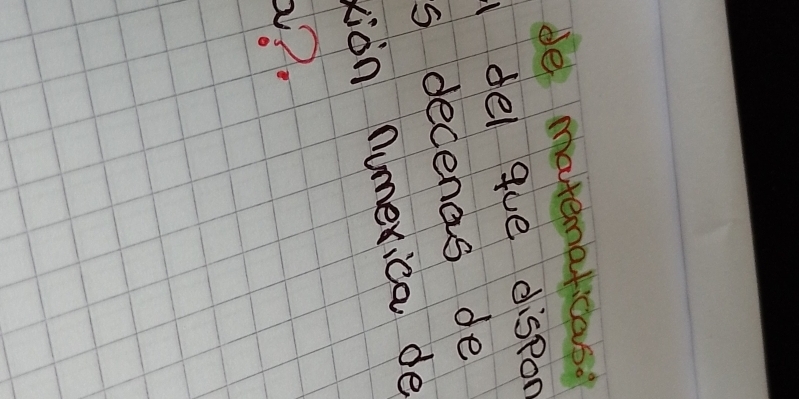 de matematicas:
del que dispon
s decenas de
xión numerica de
a?